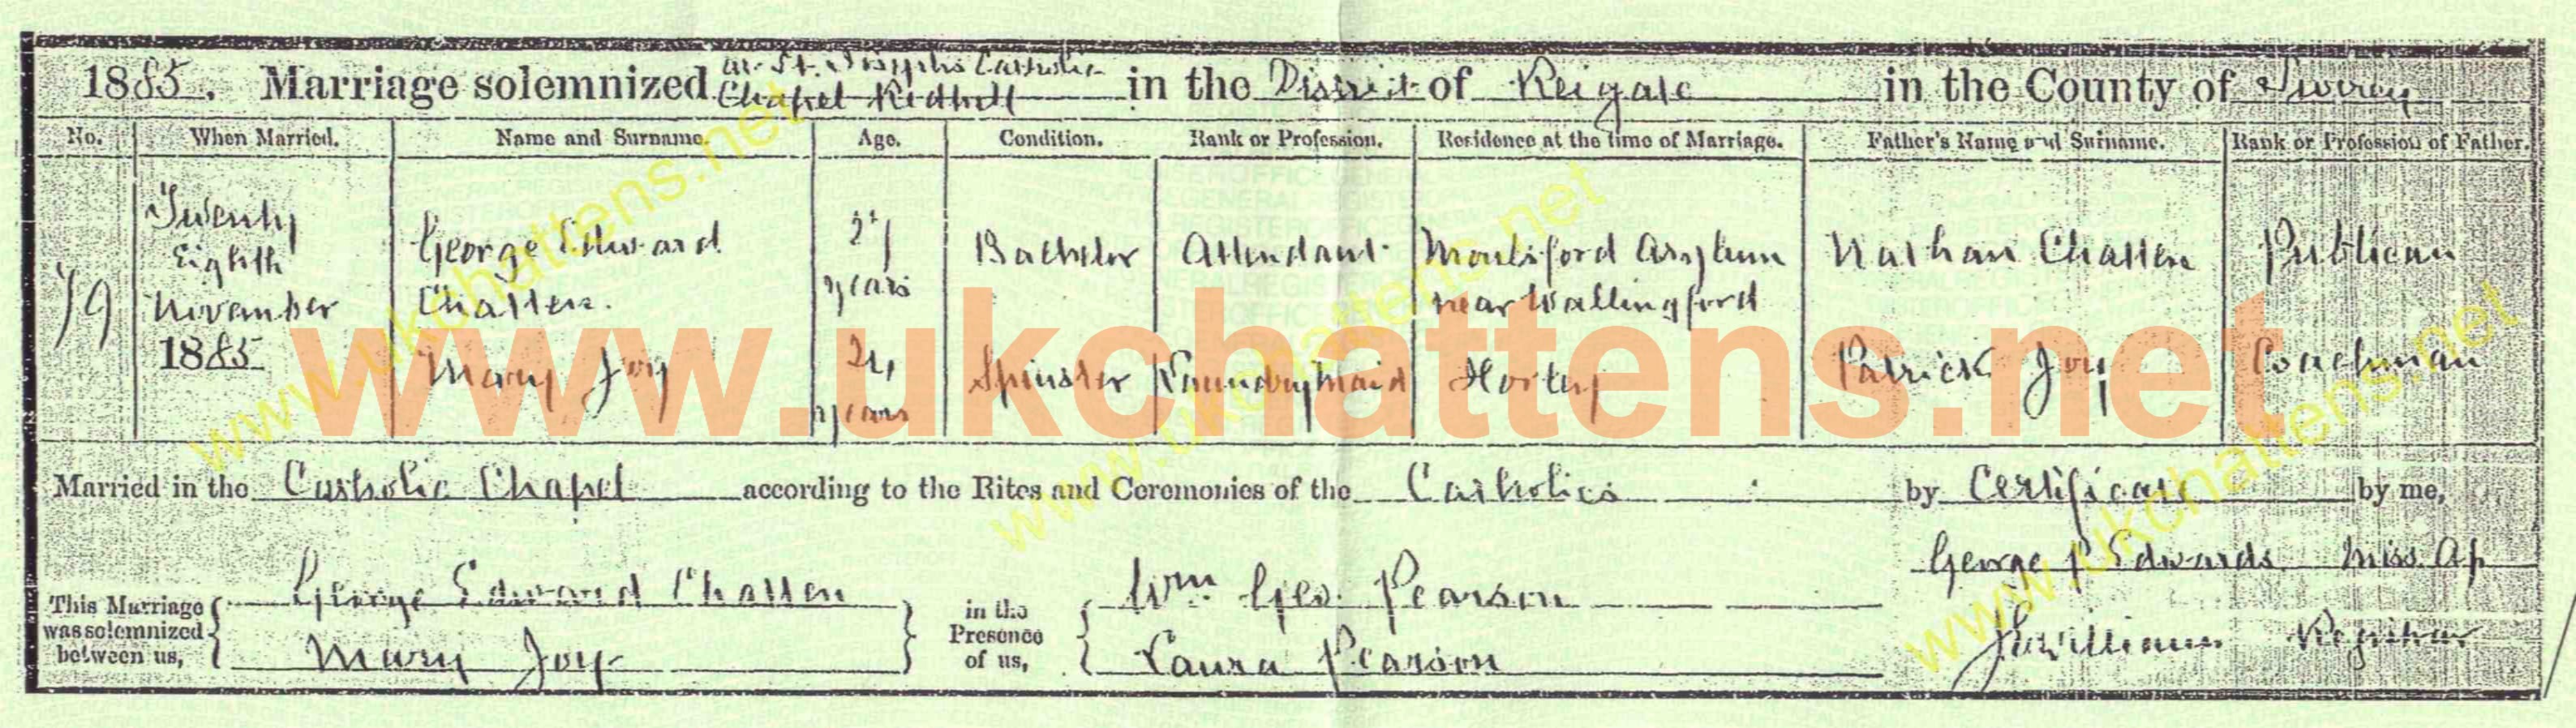 1885. Marriage solemnized at St. Joseph's Catholic Chapel Redhill in the District of Reigate in the County of Surrey
No. When Married. Name and Surname. Age. Condition. Rank or Profession. Residence at the time of Marriage. Father's Name and Surname. Rank or Profession of Father.
79
Twenty
Eighth
November
1885
George Edward
Chatten.
27
years
Bachelor
Attendant
Moulsford Asylum
near Wallingford
Nathan Chatten
Publican
Mary Joy
years
Spinster
Laundrymaid
Horley
Patrick Joy
Coachman
Married in the Catholic Chapel according to the Rites and Ceremonies of the Catholics by Certificate by me,
This Marriage
was solemnized
between us,
George Edward Chatten
Mary Joy
in the
Presence
of us,
Wm Geo. Pearson
Laura Pearson
George P Edwards Miss. Ap
Williams Registrar
www.ukchattens.net
www.ukchattens.net
www.ukchattens.net
www.ukchattens.net